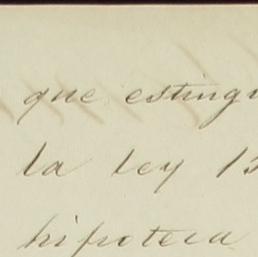 que esting
la ley 15
hipoteca